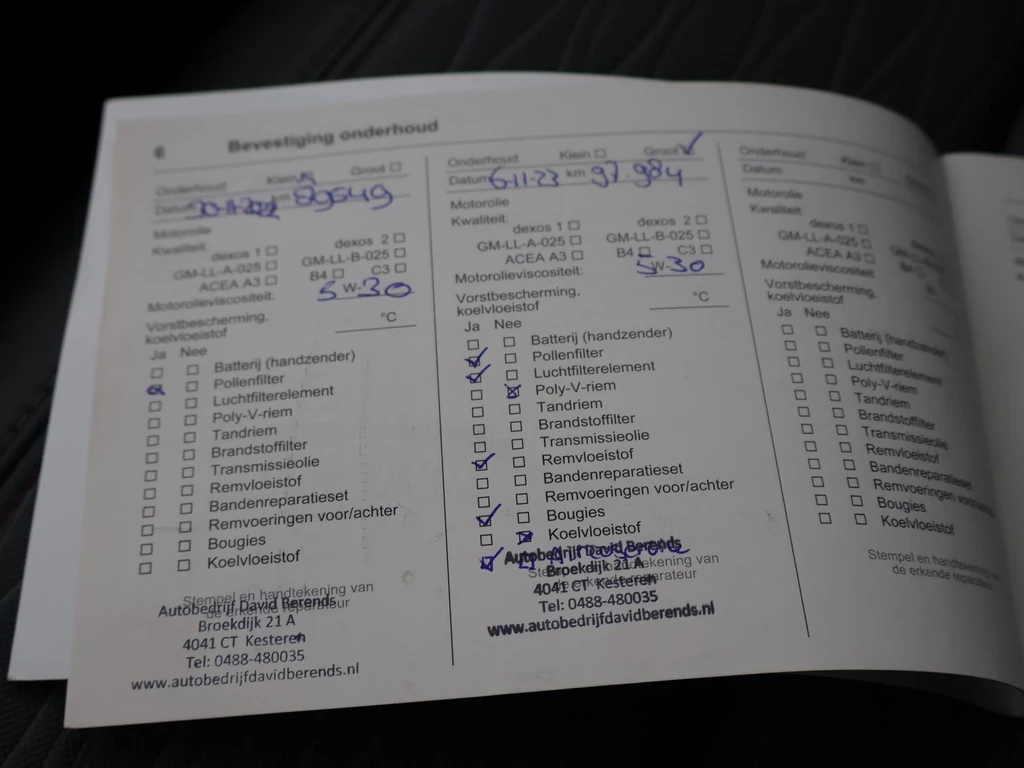 6 Bevestiging onderhoud
Onderhoud Klein Groot
Datum km 89649
Motorolie
Kwaliteit:
dexos 1 dexos 2
GM-LL-A-025 GM-LL-B-025
ACEA A3 B4 C3
Motorolieviscositeit: 5 W-30
Vorstbescherming,
koelvloeistof °C
Ja Nee
Batterij (handzender)
Pollenfilter
Luchtfilterelement
Poly-V-riem
Tandriem
Brandstoffilter
Transmissieolie
Remvloeistof
Bandenreparatieset
Remvoeringen voor/achter
Bougies
Koelvloeistof
Stempel en handtekening van
de erkende reparateur
Autobedrijf David Berends
Broekdijk 21 A
4041 CT Kesteren
Tel: 0488-480035
www.autobedrijfdavidberends.nl
Onderhoud Klein Groot
Datum 6-11-23 km 97.984
Motorolie
Kwaliteit:
dexos 1 dexos 2
GM-LL-A-025 GM-LL-B-025
ACEA A3 B4 C3
Motorolieviscositeit: 5W-30
Vorstbescherming,
koelvloeistof °C
Ja Nee
Batterij (handzender)
Pollenfilter
Luchtfilterelement
Poly-V-riem
Tandriem
Brandstoffilter
Transmissieolie
Remvloeistof
Bandenreparatieset
Remvoeringen voor/achter
Bougies
Koelvloeistof
Stempel en handtekening van
de erkende reparateur
Autobedrijf David Berends
Broekdijk 21 A
4041 CT Kesteren
Tel: 0488-480035
www.autobedrijfdavidberends.nl
Onderhoud Klein
Datum km
Motorolie
Kwaliteit:
dexos 1
GM-LL-A-025
ACEA A3
Motorolieviscositeit:
Vorstbescherming,
koelvloeistof
Ja Nee
Batterij (handzender)
Pollenfilter
Luchtfilterelement
Poly-V-riem
Tandriem
Brandstoffilter
Transmissieolie
Remvloeistof
Bandenreparatieset
Remvoeringen
Bougies
Koelvloeistof
Stempel en handtekening
de erkende